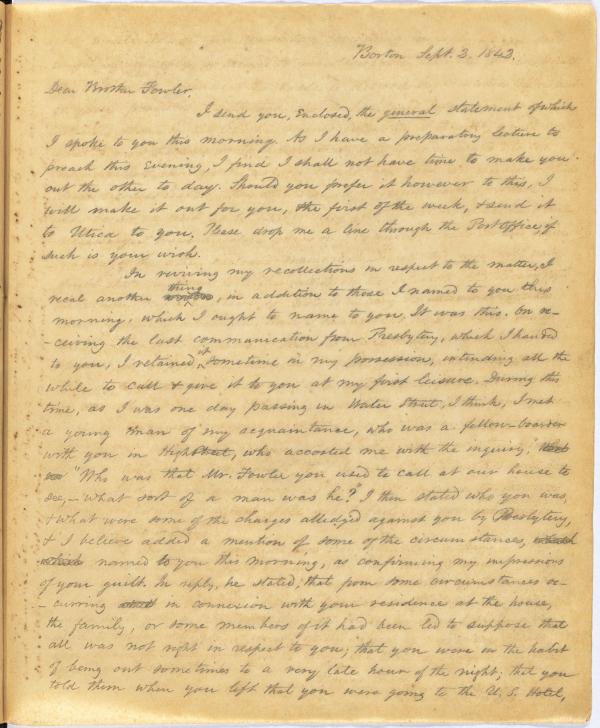 Boston Sept. 3. 1842.
Dear Brother Fowler,
I send you, Enclosed, the general statement of which
I spoke to you this morning. As I have a preparatory lecture to
preach this Evening, I find I shall not have time to make you
out the other to day. Should you prefer it however to this, I
will make it out for you, the first of the week, & send it
to Utica to you. Please drop me a line through the Post office, if
such is your wish.
In reviving my recollections in respect to the matter, I
recal another thing, in addition to those I named to you this
morning, which I ought to name to you. It was this. On re-
-ceiving the last communication from Presbytery, which I handed
to you, I retained it sometime in my possession, intending all the
while to call & give it to you at my first leisure. During this
time, as I was one day passing in Water Street, I think, I met
a young man of my acquaintance, who was a fellow-boarder
with you in High Street, who accosted me with the inquiry,
"Who was that Mr. Fowler you used to call at our house to
see,–what sort of a man was he?" I then stated who you was,
& what were some of the charges alledged against you by Presbytery,
& I believe added a mention of some of the circumstances,
named to you this morning, as confirming my impressions
of your guilt. In reply, he stated, that from some circumstances oc-
-curring in connexion with your residence at the house,
the family, or some members of it had been led to suppose that
all was not right in respect to you; that you were in the habit
of being out sometimes to a very late hour of the night; that you
told them when you left that you were going to the U. S. Hotel,